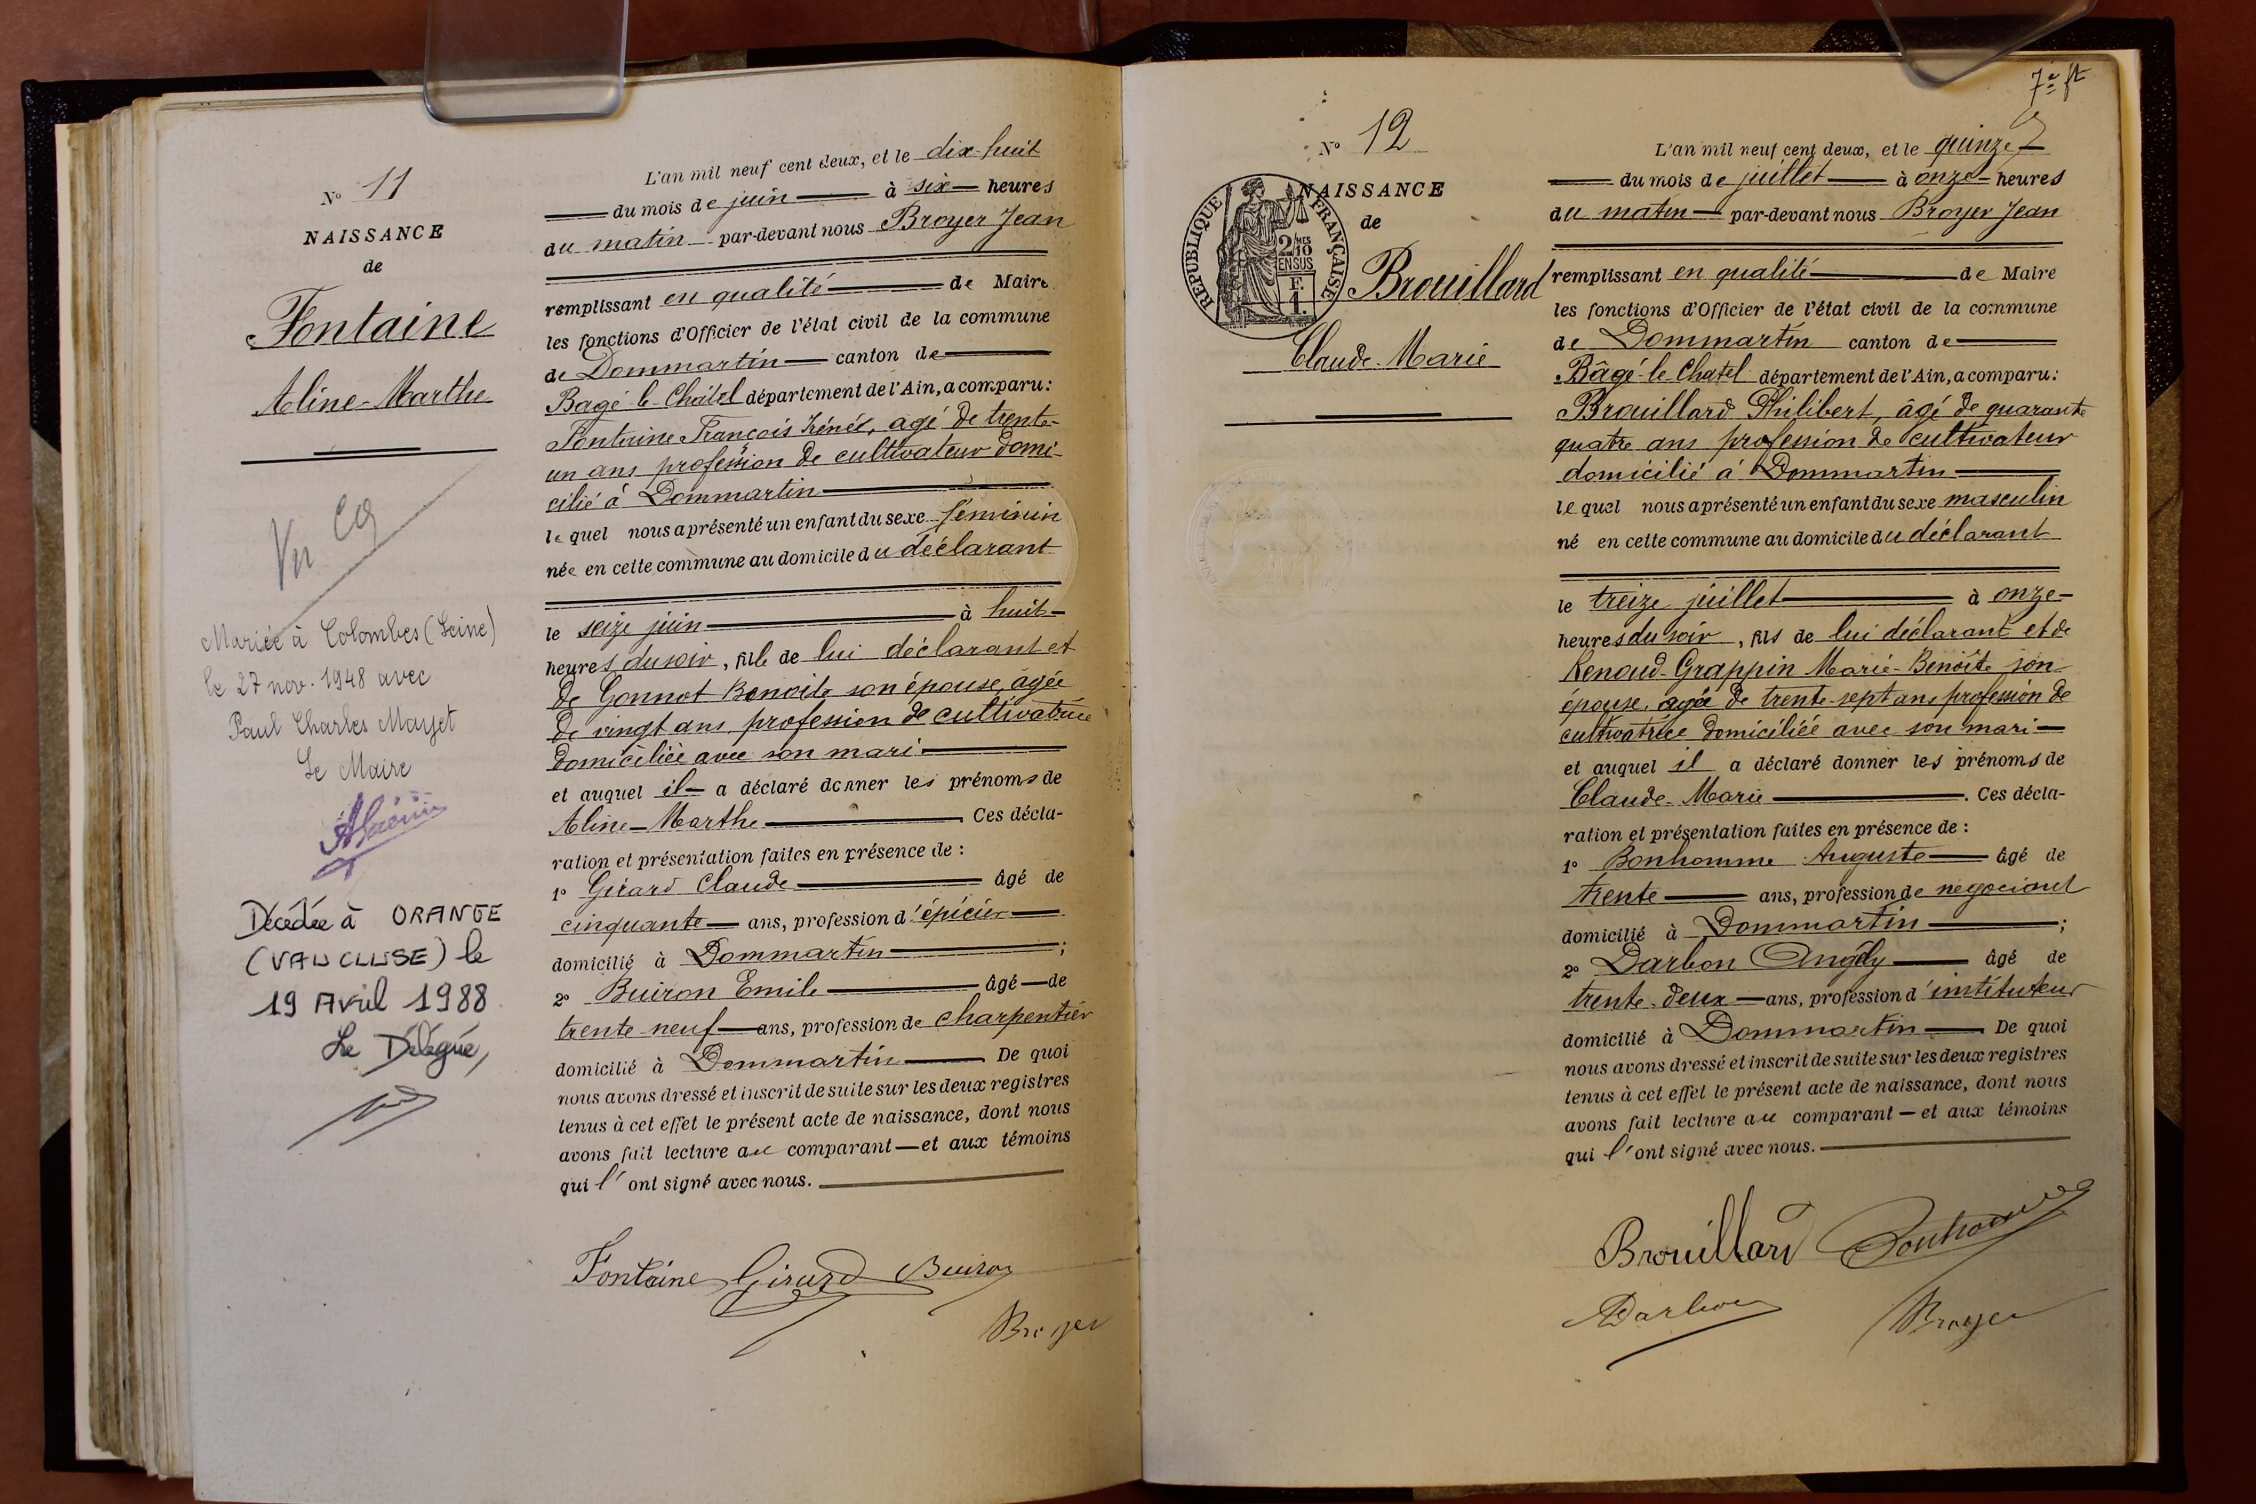 N° 11
NAISSANCE
de
Fontaine
Aline-Marthe
Vu
Mariée à Colombes (Seine)
le 27 nov. 1948 avec
Paul Charles Mayet
Le Maire
Décédée à ORANGE
(VAUCLUSE) le
19 Avril 1988
Le Délégué,
L'an mil neuf cent deux, et le dix-huit
du mois de juin à six heures
du matin par-devant nous Broyer Jean
remplissant en qualité de Maire
les fonctions d'Officier de l'état civil de la commune
de Dommartin canton de
Bagé-le-Châtel département de l'Ain, a comparu:
Fontaine François Irénée, agé de trente-
un ans profession de cultivateur domi-
cilié à Dommartin
lequel nous a présenté un enfant du sexe féminin
née en cette commune au domicile du déclarant
le seize juin à huit
heures du soir, fille de lui déclarant et
de Gonnot Benoite son épouse, âgée
de vingt ans profession de cultivatrice
domiciliée avec son mari
et auquel il a déclaré donner les prénoms de
Aline-Marthe Ces décla-
ration et présentation faites en présence de :
1° Girard Claude âgé de
cinquante ans, profession d'épicier
domicilié à Dommartin ;
2° Buiron Emile âgé de
trente neuf ans, profession de charpentier
domicilié à Dommartin De quoi
nous avons dressé et inscrit de suite sur les deux registres
tenus à cet effet le présent acte de naissance, dont nous
avons fait lecture au comparant et aux témoins
qui l'ont signé avec nous.
Fontaine Girard Buiron
Broyer
7e ft
N° 12
NAISSANCE
de
REPUBLIQUE FRANÇAISE
2/10 MES
EN SUS
F.
1.
Brouillard
Claude-Marie
L'an mil neuf cent deux, et le quinze
du mois de juillet à onze heures
du matin par-devant nous Broyer Jean
remplissant en qualité de Maire
les fonctions d'Officier de l'état civil de la commune
de Dommartin canton de
Bâgé-le-Chatel département de l'Ain, a comparu:
Brouillard Philibert, âgé de quarante
quatre ans profession de cultivateur
domicilié à Dommartin
lequel nous a présenté un enfant du sexe masculin
né en cette commune au domicile du déclarant
le treize juillet à onze
heures du soir, fils de lui déclarant et de
Renoud-Grappin Marie-Benoîte son
épouse, agée de trente-sept ans profession de
cultivatrice domiciliée avec son mari
et auquel il a déclaré donner les prénoms de
Claude-Marie . Ces décla-
ration et présentation faites en présence de :
1° Bonhomme Auguste âgé de
trente ans, profession de negociant
domicilié à Dommartin ;
2° Darbon Angély âgé de
trente-deux ans, profession d'instituteur
domicilié à Dommartin De quoi
nous avons dressé et inscrit de suite sur les deux registres
tenus à cet effet le présent acte de naissance, dont nous
avons fait lecture au comparant et aux témoins
qui l'ont signé avec nous.
Brouillard Bonhomme
Darbon Broyer